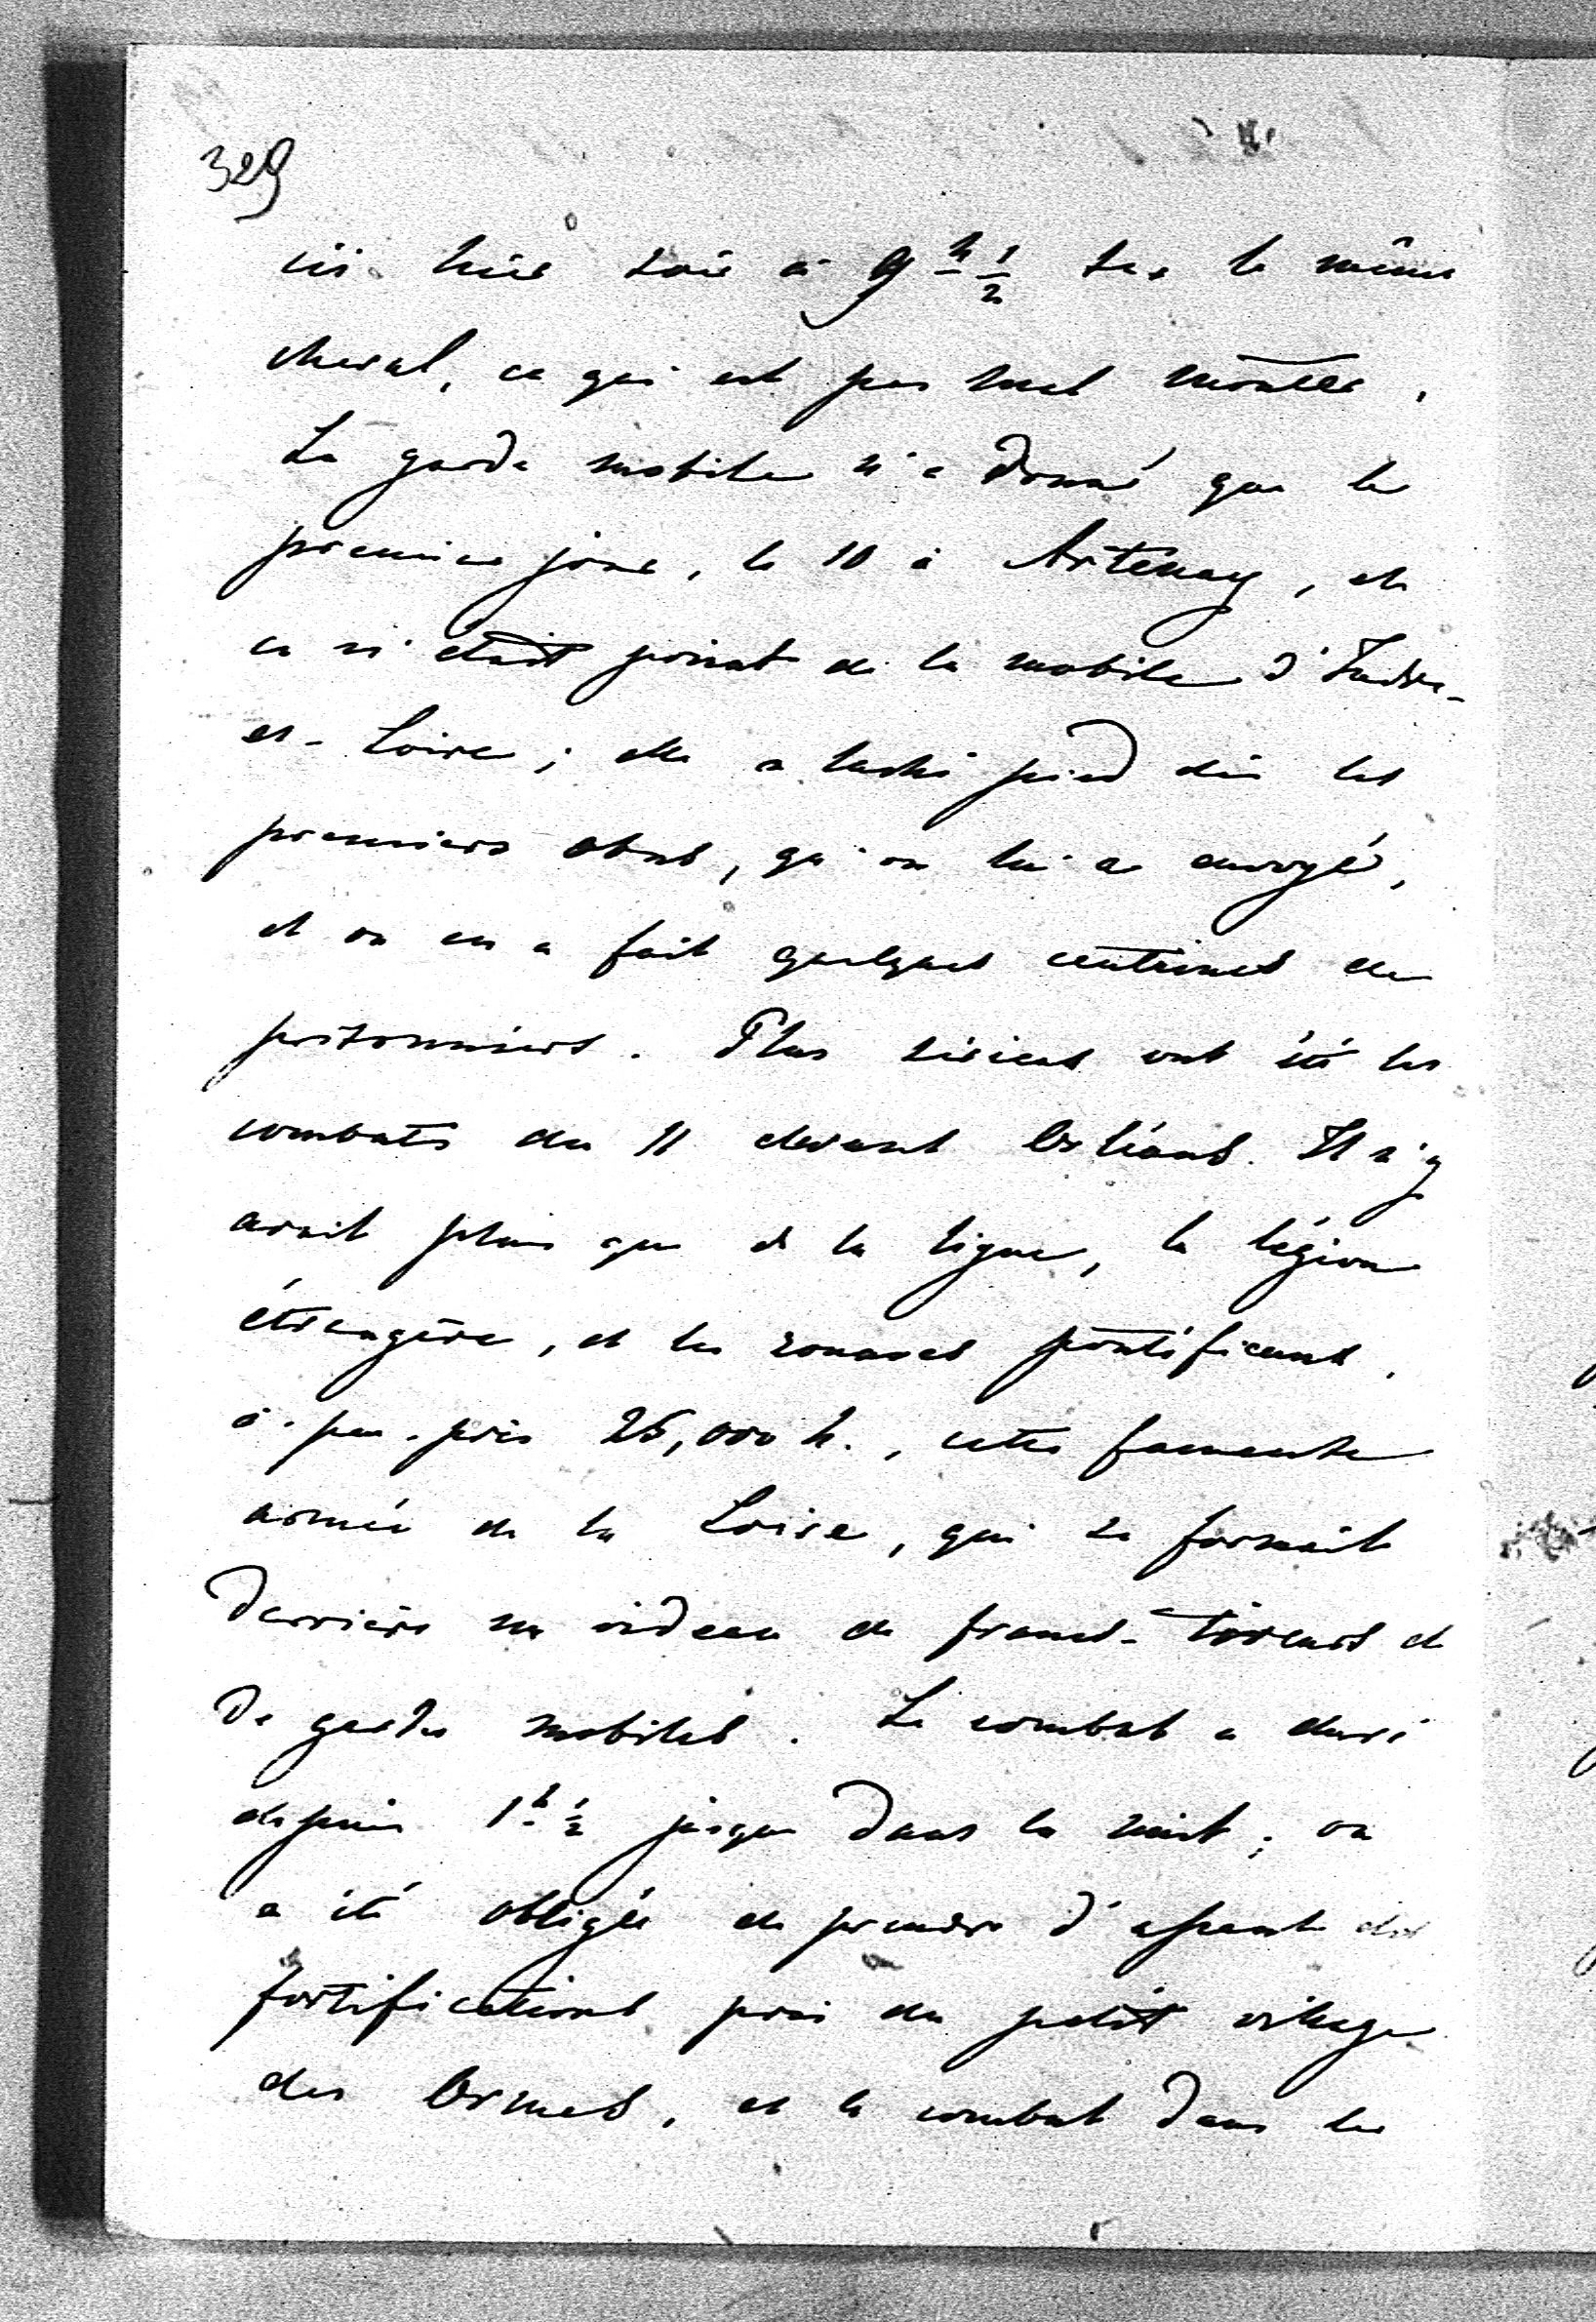 329
ici hier soir à 9 h ½ sur le même
cheval, ce qui est pas mal monter.
La garde mobile n'a donné que le
premier jour, le 10 à Artenay, et
ce n'était point de la mobile d'Indre-
et-Loire; elle a laché pied dès les
premiers obus, qu'on lui a envoyé,
et on en a fait quelques centaines de
prisonniers. Plus sérieux ont été les
combats du 11 devant Orléans. Il n'y
avait plus que de la ligne, la légion
étrangère, et les zouaves pontificaux,
à-peu-près 25,000 h., cette fameuse
armée de la Loire, qui se formait
derrière un rideau de francs-tireurs et
de gardes mobiles. Le combat a duré
depuis 1 h ½ jusque dans la nuit; on
a été obligé de prendre d'assaut des
fortifications près du petit village
des Ormes, et le combat dans les